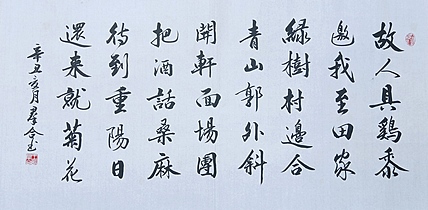 故人具鷄黍
邀我至田家
綠樹村邊合
青山郭外斜
開軒面場圃
把酒話桑麻
待到重陽日
還来就菊花
辛丑亥月群合书